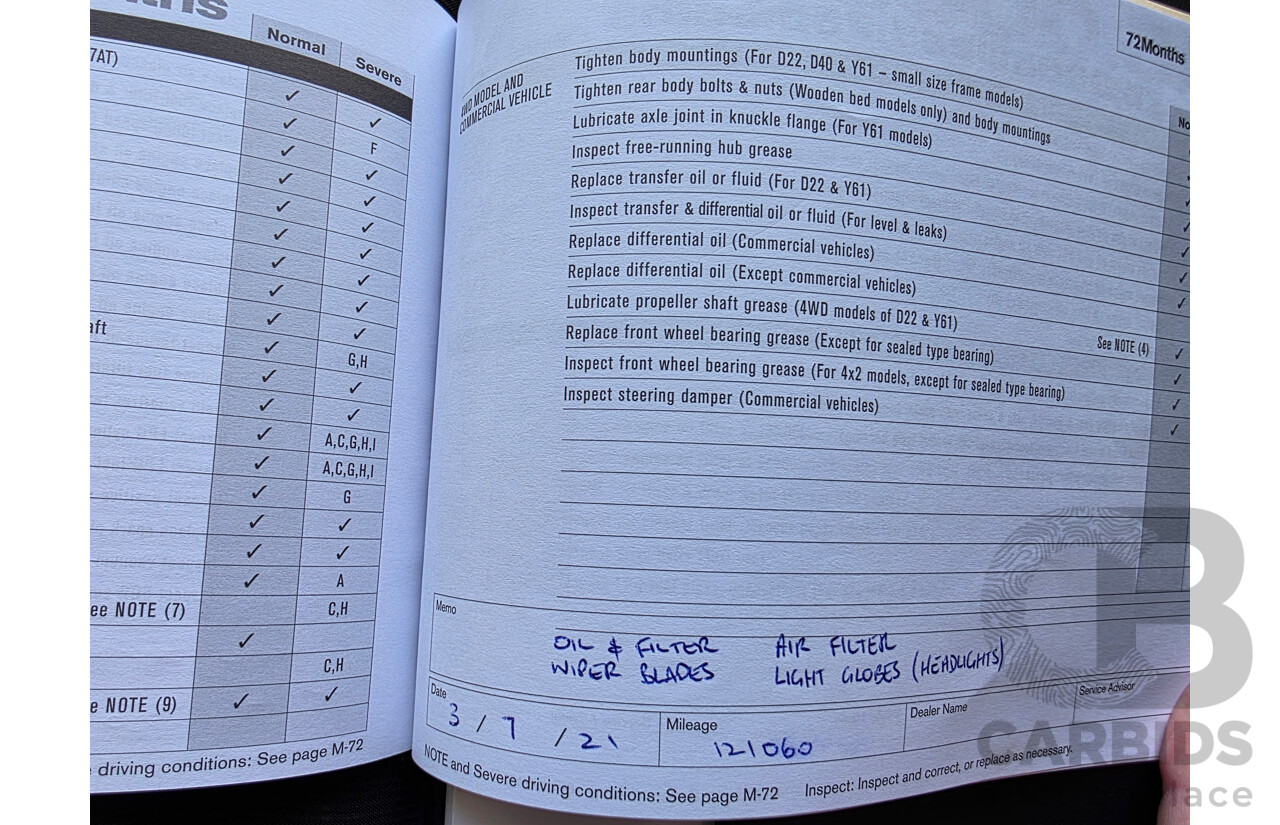 Normal
Severe
7AT)
✓
✓ ✓
✓ F
✓ ✓
✓ ✓
✓ ✓
✓ ✓
✓ ✓
✓ ✓
aft ✓ ✓
✓ G,H
✓ ✓
✓ ✓
✓ A,C,G,H,I
✓ A,C,G,H,I
✓ G
✓ ✓
✓ ✓
✓ A
ee NOTE (7) C,H
✓
C,H
e NOTE (9) ✓ ✓
driving conditions: See page M-72
72Months
No
4WD MODEL AND
COMMERCIAL VEHICLE
Tighten body mountings (For D22, D40 & Y61 – small size frame models)
Tighten rear body bolts & nuts (Wooden bed models only) and body mountings
Lubricate axle joint in knuckle flange (For Y61 models)
Inspect free-running hub grease
Replace transfer oil or fluid (For D22 & Y61)
Inspect transfer & differential oil or fluid (For level & leaks)
Replace differential oil (Commercial vehicles)
Replace differential oil (Except commercial vehicles)
Lubricate propeller shaft grease (4WD models of D22 & Y61)
Replace front wheel bearing grease (Except for sealed type bearing) See NOTE (4)
Inspect front wheel bearing grease (For 4x2 models, except for sealed type bearing)
Inspect steering damper (Commercial vehicles)
Memo
OIL & FILTER AIR FILTER
WIPER BLADES LIGHT GLOBES (HEADLIGHTS)
Date
3 / 7 / 21
Mileage
121060
Dealer Name
Service Advisor
NOTE and Severe driving conditions: See page M-72
Inspect: Inspect and correct, or replace as necessary.
CARBIDS